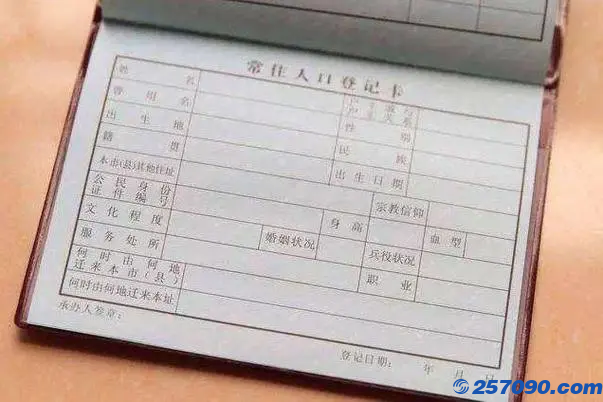 常住人口登记卡
姓名 户主或与户主关系
曾用名 性别
出生地 民族
籍贯 出生日期
本市(县)其他住址 宗教信仰
公民身份证件编号 身高 血型
文化程度 婚姻状况 兵役状况
服务处所 职业
何时由何地迁来本市(县)
何时由何地迁来本址
承办人签章:
登记日期: 年 月 日
257090.com